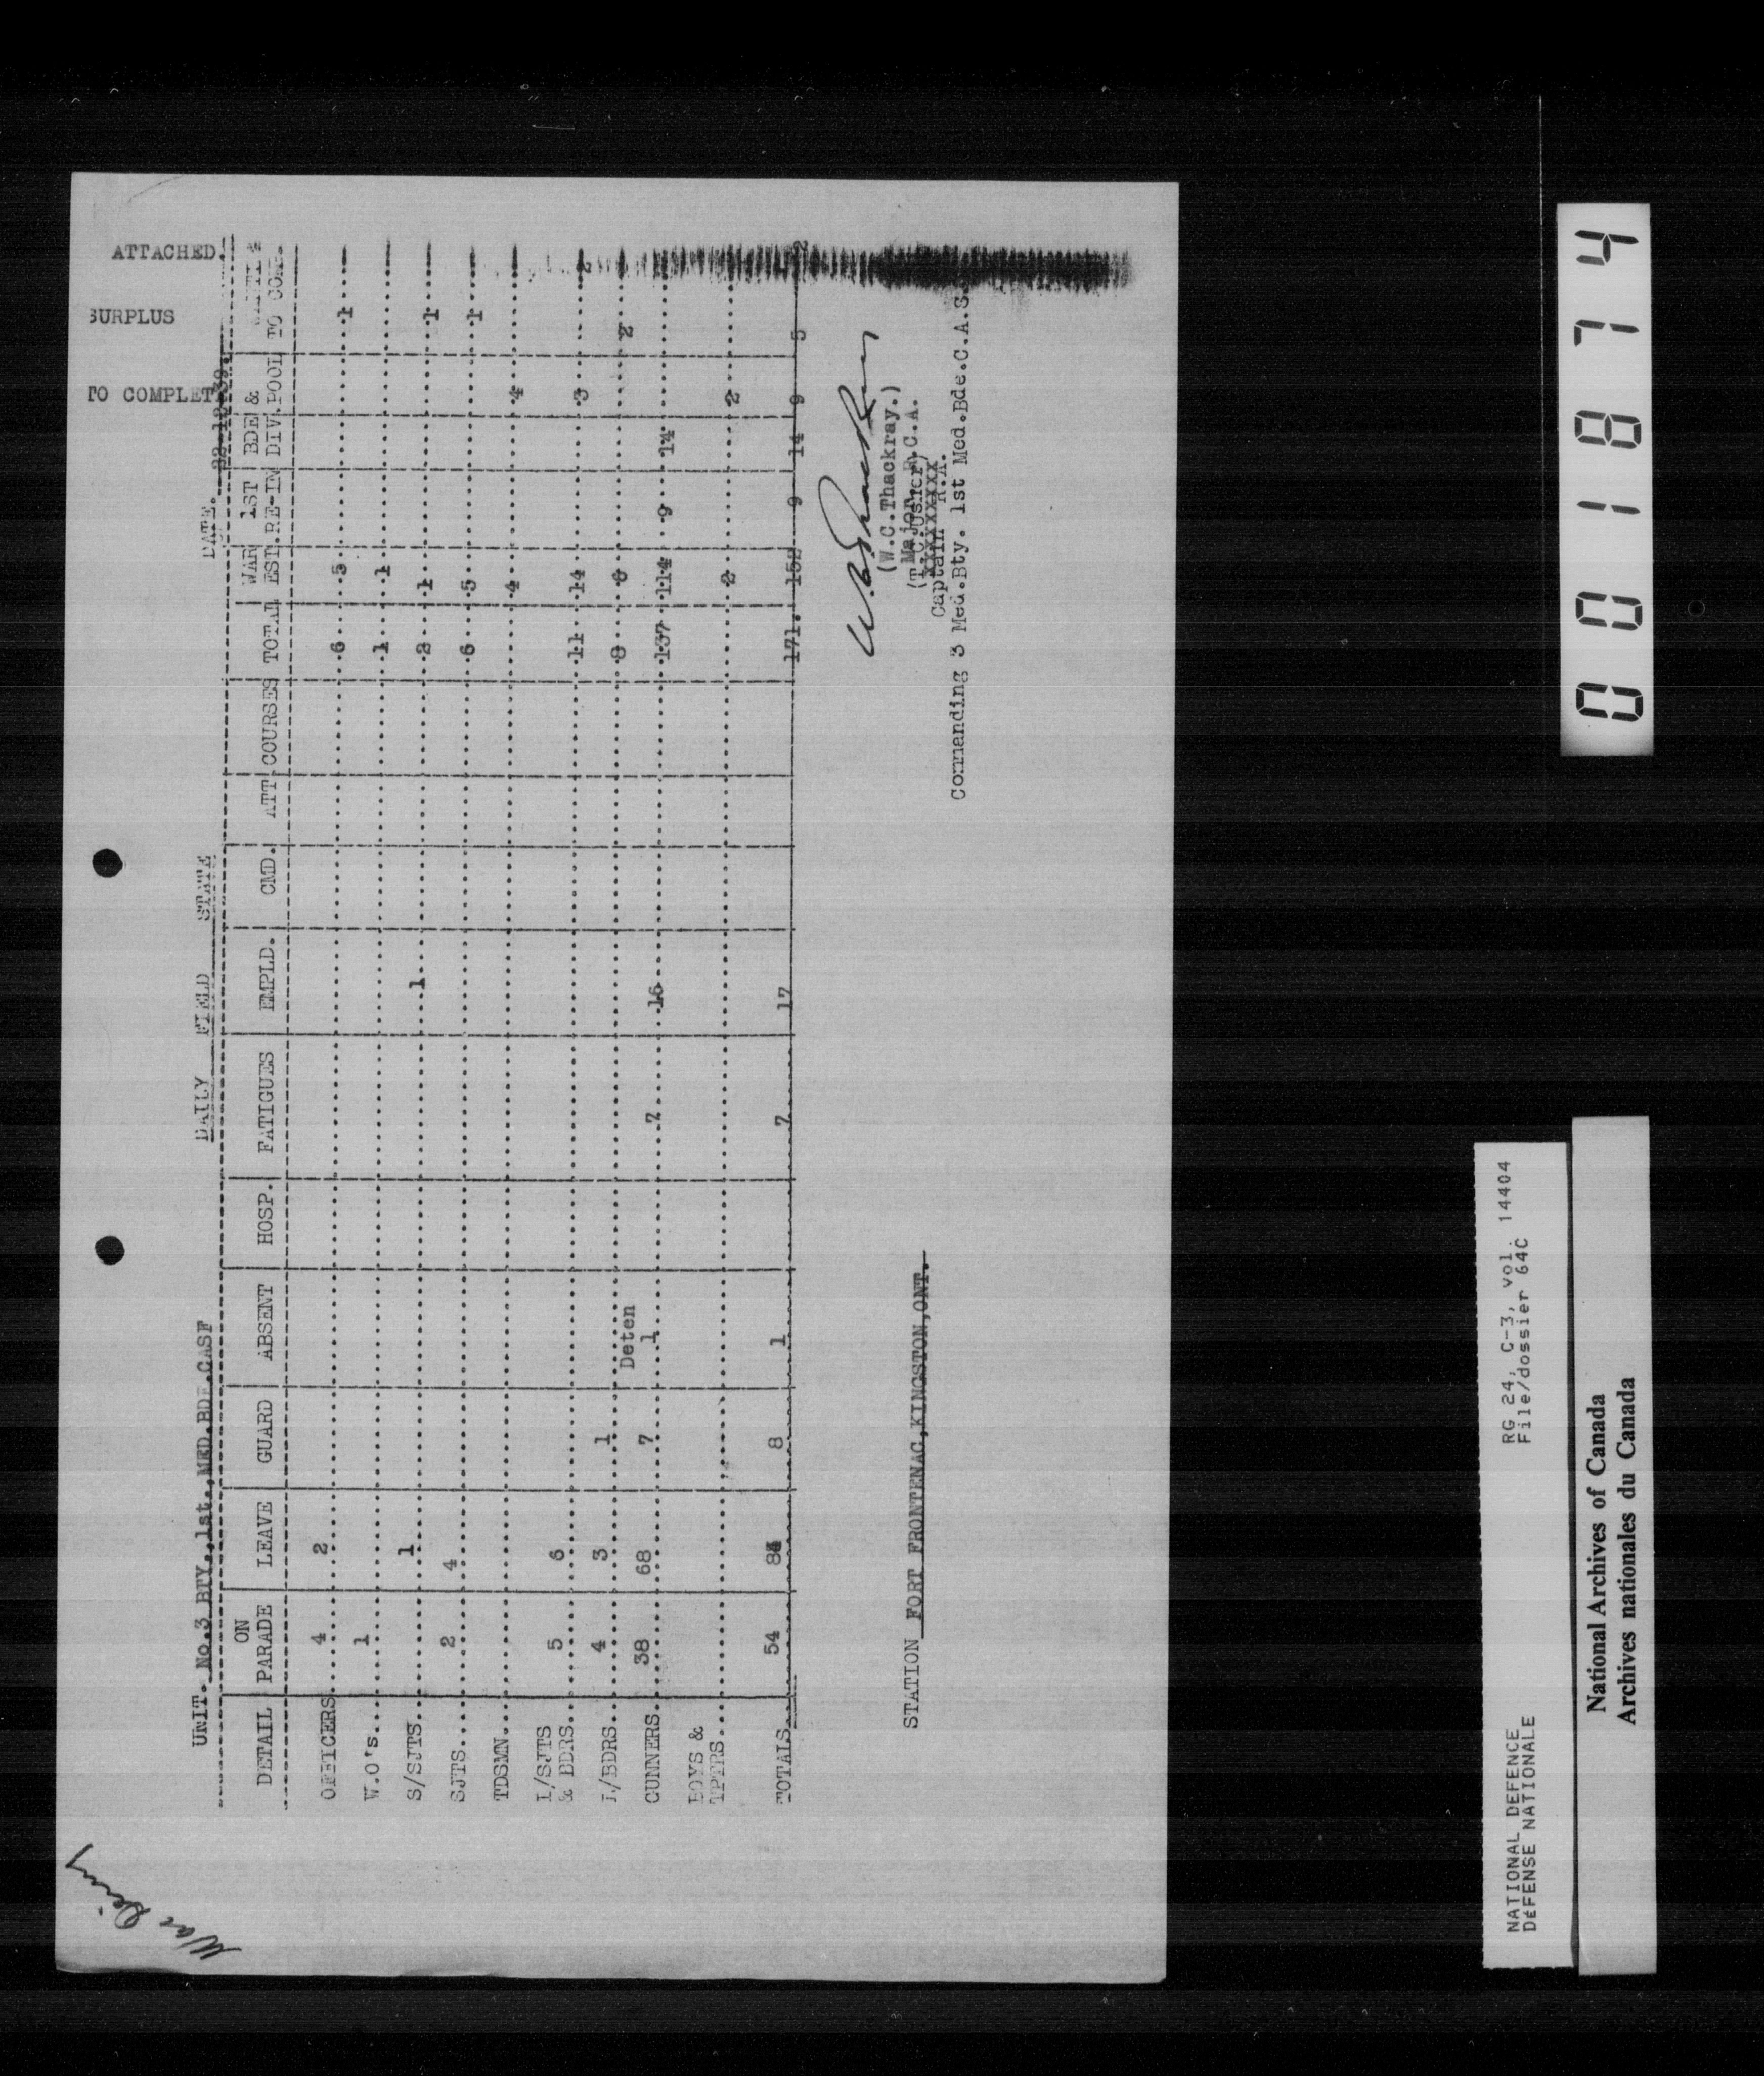 War Diary
ATTACHED
SURPLUS
TO COMPLETE
UNIT. No.3 BTY.,1st.,MED.BDE.CASF DAILY FIELD STATE DATE. 22-12-39.
DETAIL ON PARADE LEAVE GUARD ABSENT HOSP. FATIGUES EMPLD. CMD. ATT COURSES TOTAL WAR EST. 1ST RE-IN BDE & DIV.POOL TO COM.
OFFICERS 4 2 6 5 1
W.O's. 1 1 1
S/SJTS 1 1 2 1 1
SJTS 2 4 6 5 1
TDSMN 4 4
L/SJTS & BDRS 5 6 11 14 3 2
L/BDRS 4 3 1 8 6 2
Deten
GUNNERS 38 68 7 1 7 16 137 114 9 14
BOYS & TPTRS 2 2
TOTALS 54 8 1 7 17 171. 152 9 14 9 5 2
(W.C.Thackray.)
Major, R.C.A.
Captain R.A.
STATION FORT FRONTENAC,KINGSTON,ONT.
Commanding 3 Med.Bty. 1st Med.Bde.C.A.S.
001874
NATIONAL DEFENCE RG 24, C-3, vol. 14404
DÉFENSE NATIONALE File/dossier 64C
National Archives of Canada
Archives nationales du Canada